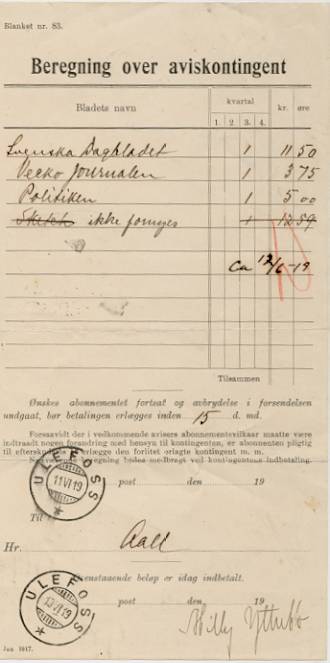 Blanket nr. 83.
Beregning over aviskontingent
Bladets navn
kvartal
kr. øre
1. 2. 3. 4.
Svenska Dagbladet 1 11 50
Vecko Journalen 1 3 75
Politiken 1 5 00
Sketch ikke fornyes 1 12 59
Ca 12/6-19
Tilsammen
Ønskes abonnementet fortsat og avbrydelse i forsendelsen
undgaat, bør betalingen erlægges inden 15 d. md.
Forsaavidt der i vedkommende avisers abonnementsvilkaar maatte være
indtraadt nogen forandring med hensyn til kontingenten, er abonnenten pligtig
til efterskudsvis at erlægge den forlitet erlagte kontingent m. m.
beregning bedes medbragt ved kontingentens indbetaling.
ULEFOSS
11 VI 19
post den 19
Til
Hr. Aall
ULEFOSS
13 VI 19
enstaaende beløp er idag indbetalt.
post den 19
Milly Yttubø
Jan 1917.